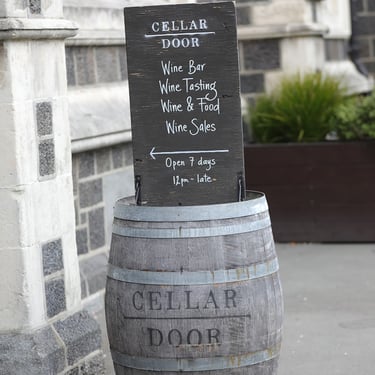 CELLAR
DOOR
Wine Bar
Wine Tasting
Wine & Food
Wine Sales
Open 7 days
12pm - late -
CELLAR
DOOR